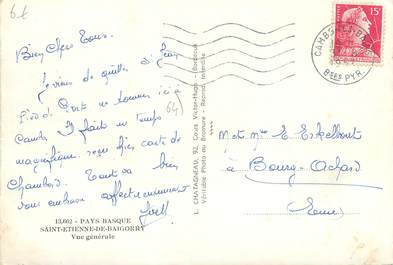 6€
Bien Chers Tous.
je viens de quitter St Jean
Pied de Port
Cambo Il fait un temps
magnifique. reçu hier carte de
Chambord. Tout va bien
vous embrasse affectueusement
Joël
64
13.602 - PAYS BASQUE
SAINT-ETIENNE-DE-BAIGORRY
Vue générale
L. CHATAGNEAU, 92, Cours Victor-Hugo - Bordeaux
Véritable Photo au Bromure - Reprod. Interdite
15F
CAMBO-LES-BAINS
Bses PYR.
Met Mme E.
à Bourg-Achard
(Eure)